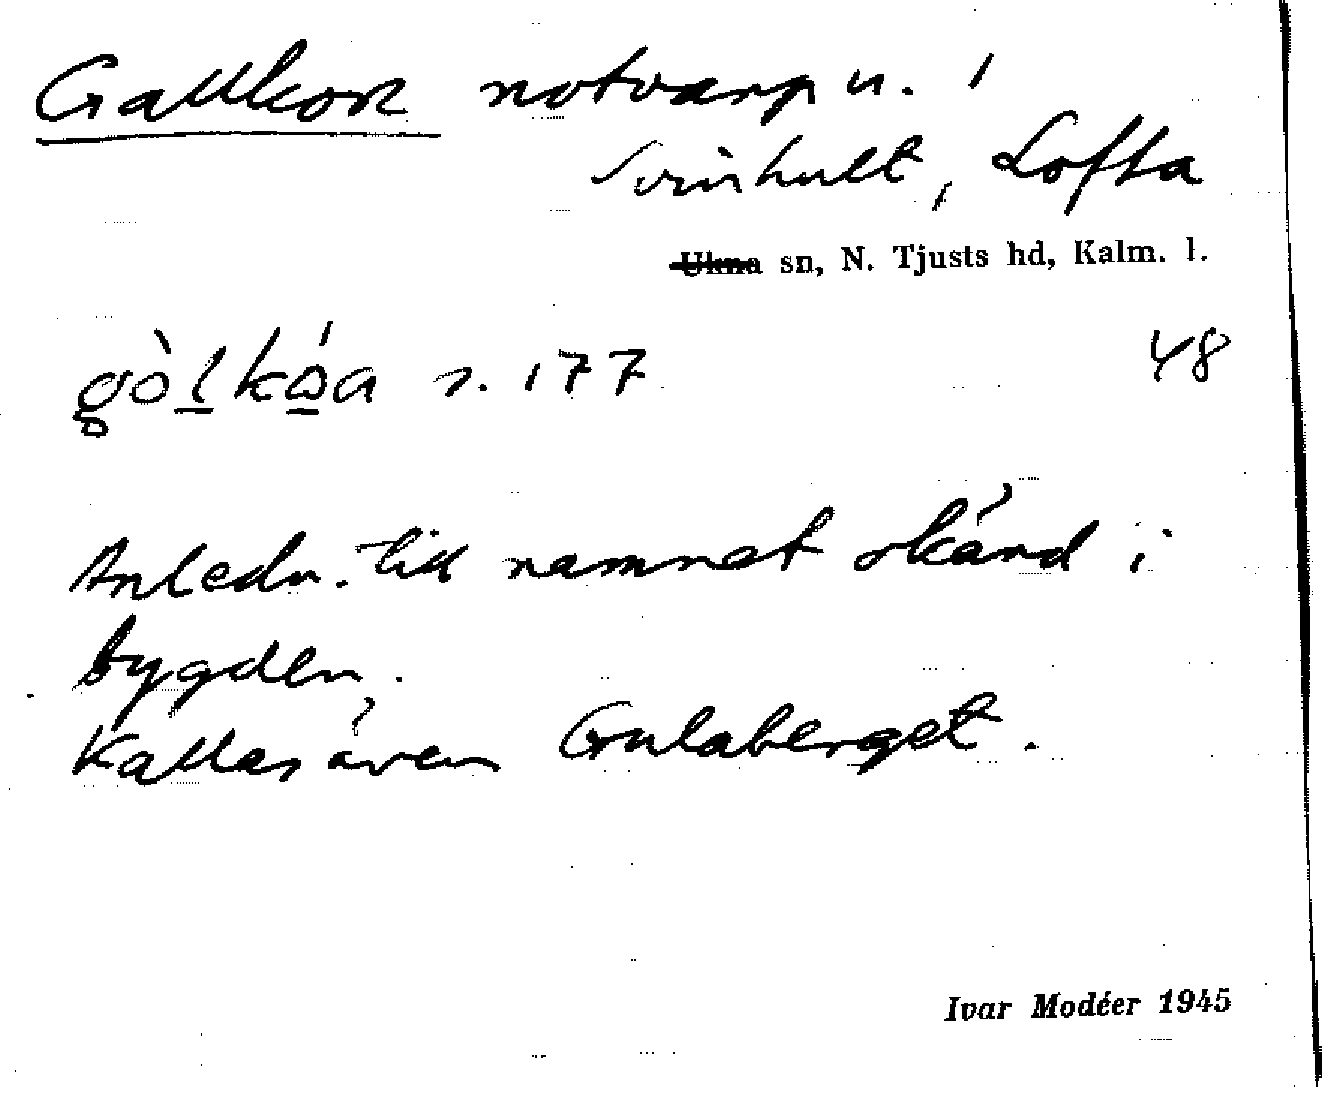 Gallkor notvarp u. i
Svinhult, Lofta
Ukna sn, N. Tjusts hd, Kalm. l.
s. 177 48
Anledn. till namnet okänd i
bygden.
Kallas även Gulaberget.
Ivar Modéer 1945